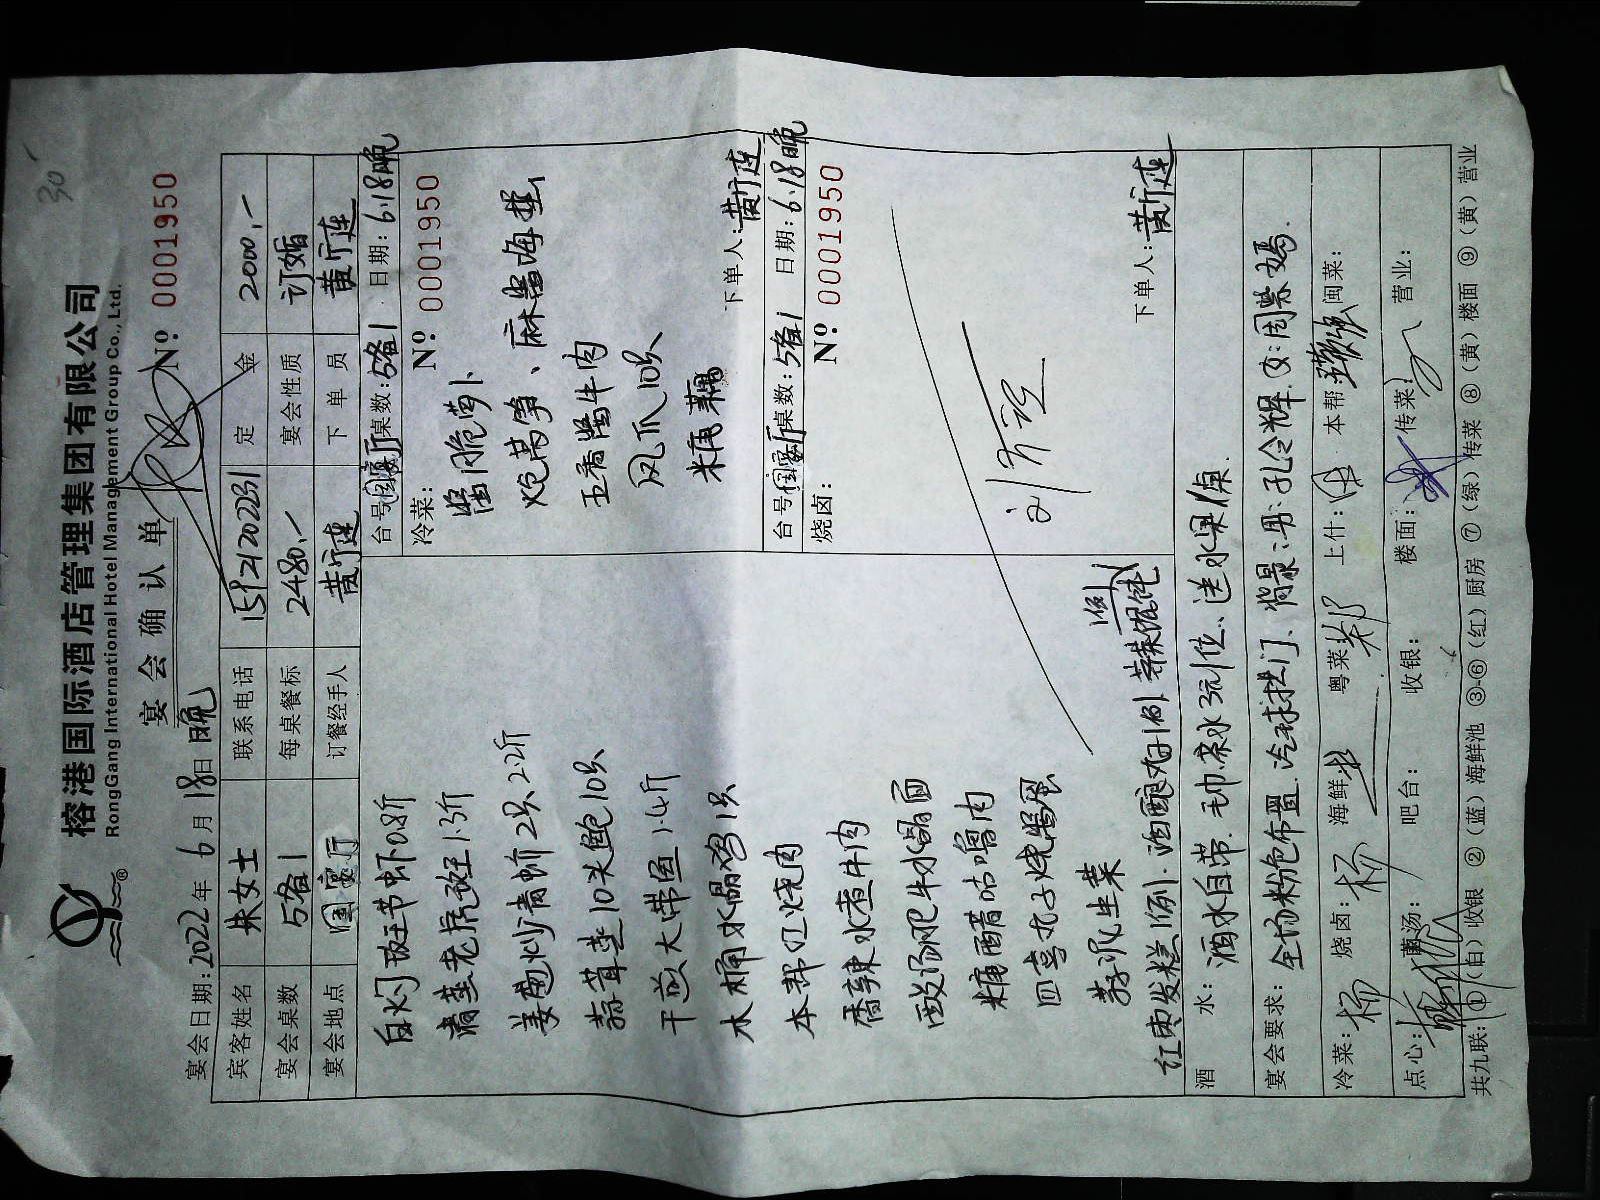 30
榕港国际酒店管理集团有限公司
RongGang International Hotel Management Group Co., Ltd.
宴会确认单
№ 0001950
宴会日期:2022年6月18日晚
宾客姓名 朱女士 联系电话 15121202231 定金 2000,-
宴会桌数 5备1 每桌餐标 2480,- 宴会性质 订婚
宴会地点 国宴厅 订餐经手人 黄广连 下单员 黄广连
台号 国宴厅 桌数:5备1 日期:6.18晚
冷菜: № 0001950
酱脆萝卜
炝莴笋、麻酱海蜇
五香酱牛肉
凤爪10只
下单人:黄广连
台号 国宴厅 桌数:5备1 日期:6.18晚
烧卤: № 0001950
下单人:黄广连
白灼斑节虾0.8斤
清蒸老虎斑1.3斤
姜葱炒青蟹2只2.2斤
蒜茸蒸10头鲍10只
干煎大带鱼1.4斤
木桶水晶鸡1只
本帮红烧肉
香辣水煮牛肉
酸汤肥牛水晶面
糖醋咕噜肉
四喜丸子烧酱蛋
蒜泥生菜
红枣发糕1例.酒酿丸子1例 荠菜馄饨 1例
酒水: 酒水自带.毛巾茶水3元/位、送水果1桌.
宴会要求: 全场粉色布置.冷球拱门、背景:男:孔令辉 女:周紫嫣.
冷菜:杨 烧卤:杨 海鲜: 粤菜: 上什: 本帮: 闽菜:
点心: 羹汤: 吧台: 收银: 楼面: 传菜: 营业:
共九联:①(白)收银 ②(蓝)海鲜池 ③-⑥(红)厨房 ⑦(绿)传菜 ⑧(黄)楼面 ⑨(黄)营业